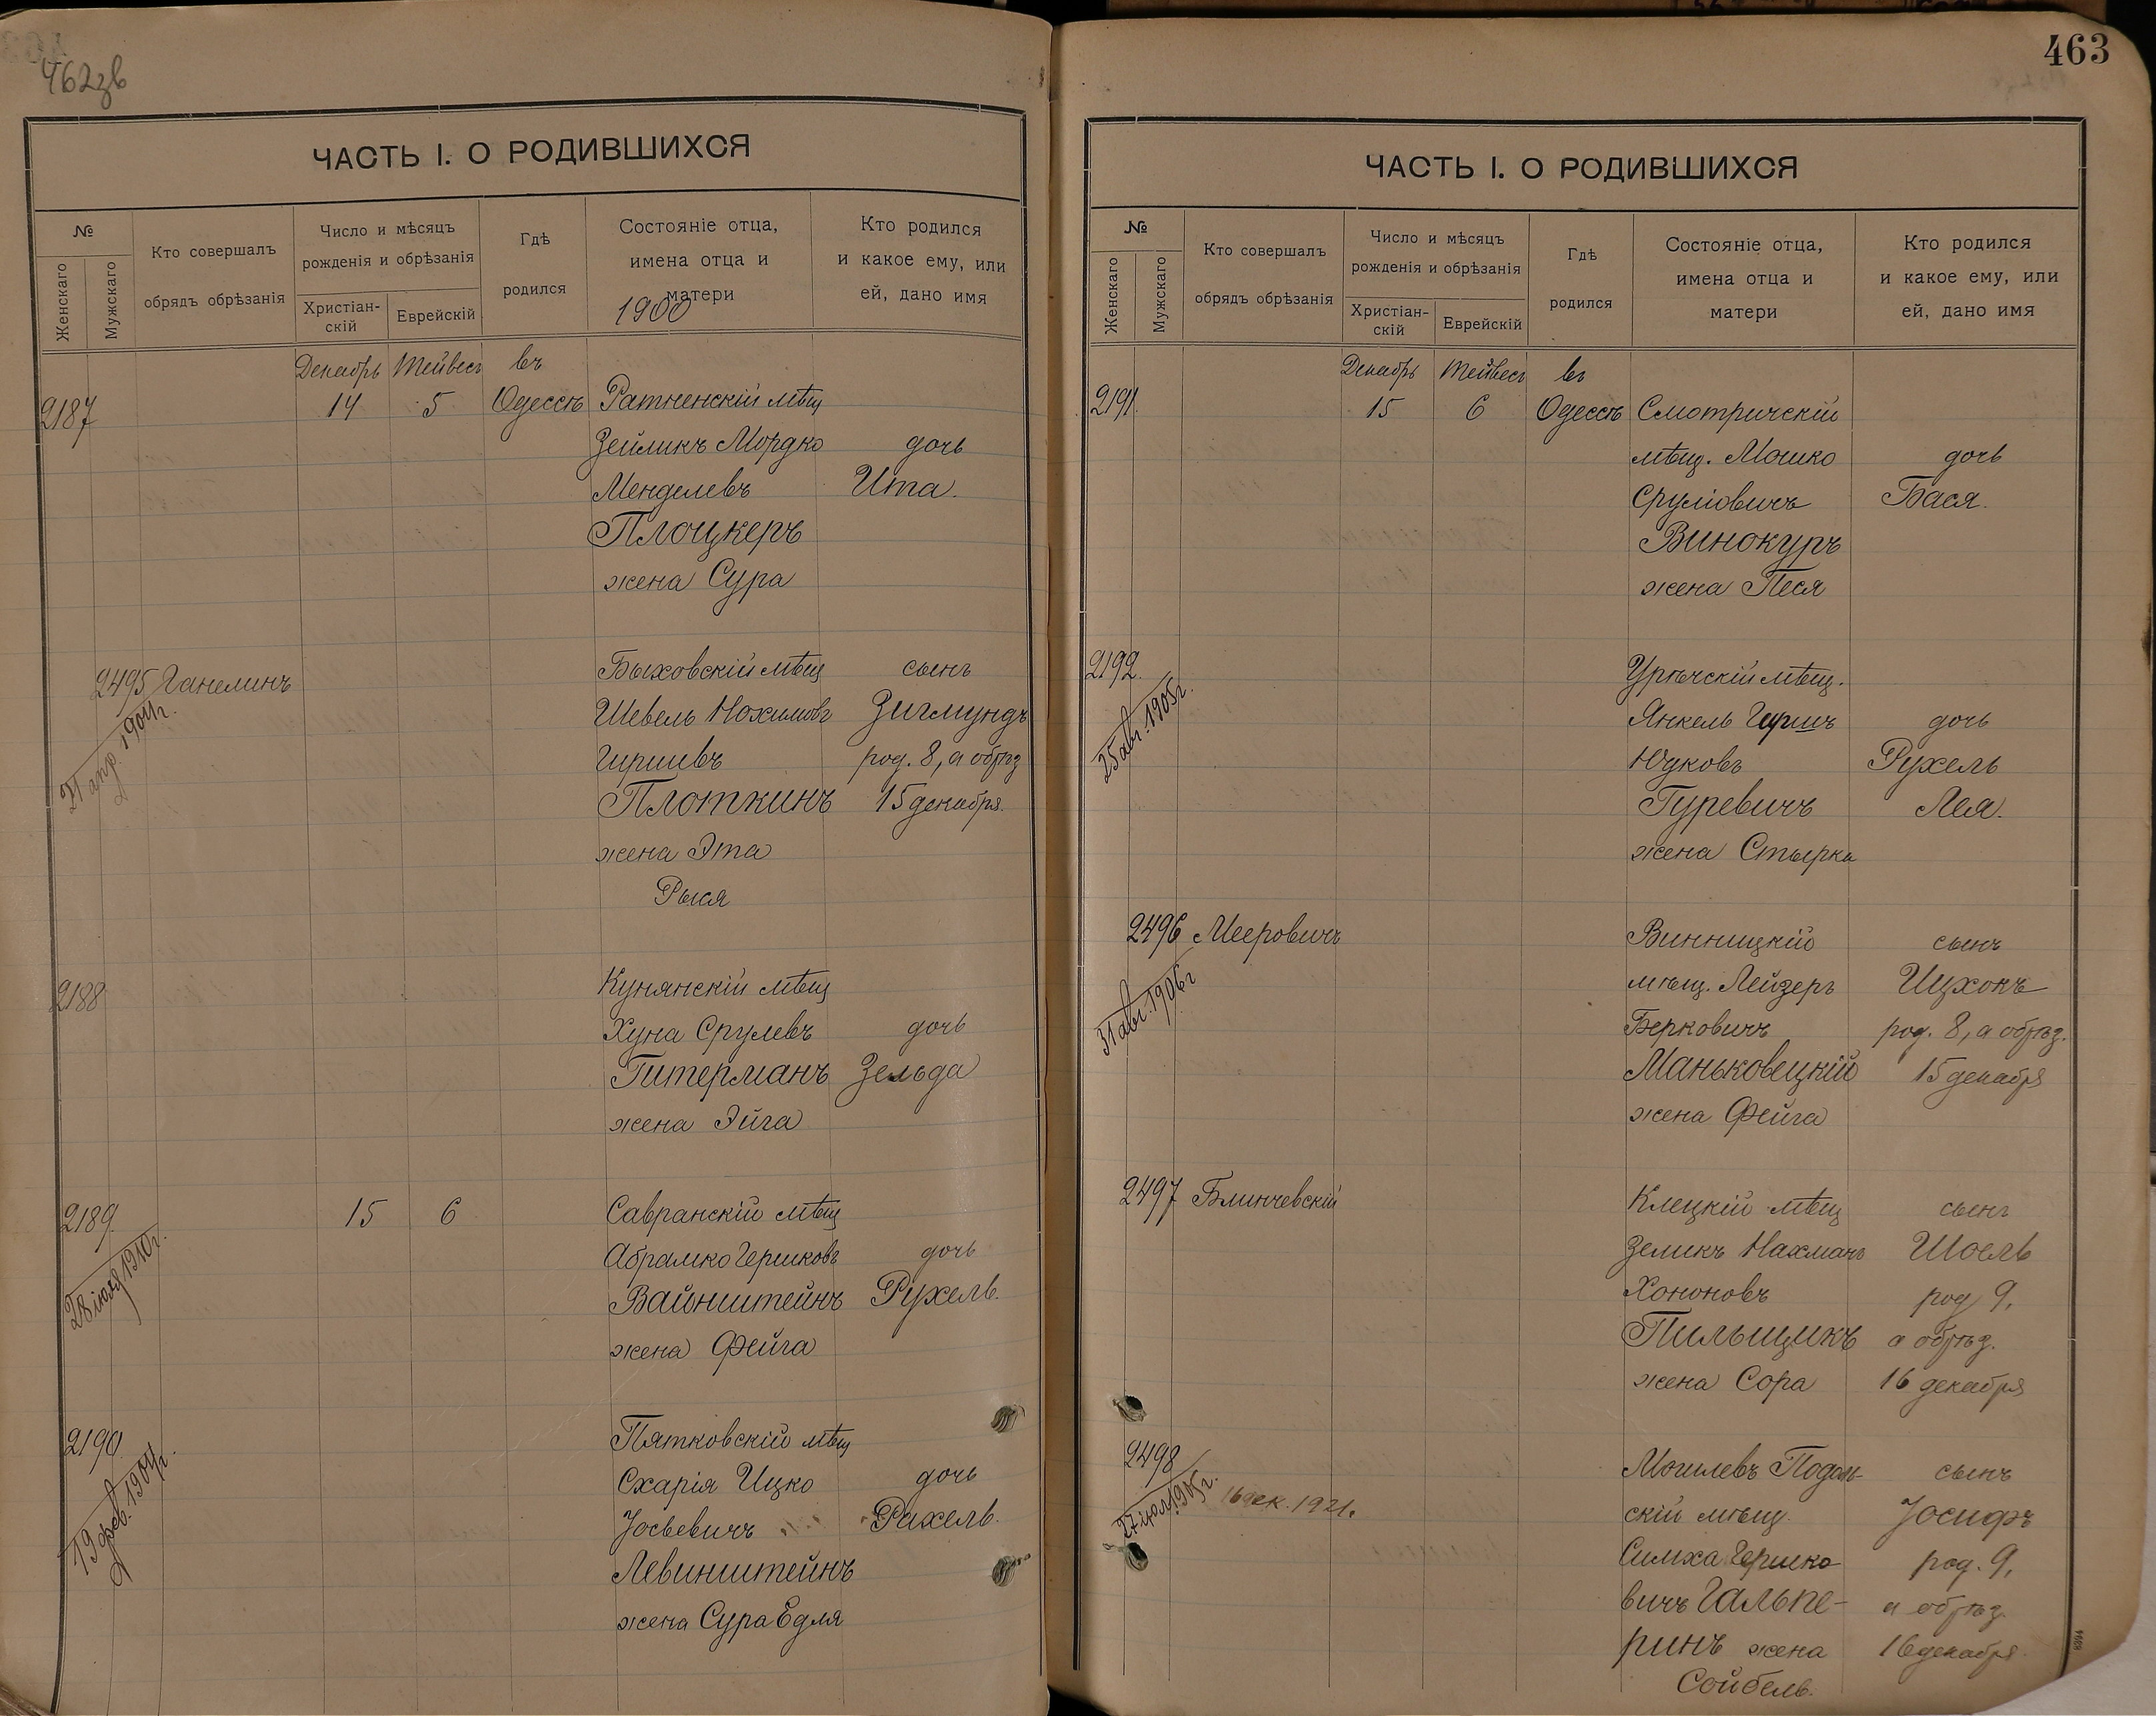 462зв
ЧАСТЬ I. О РОДИВШИХСЯ
№
Женскаго
Мужскаго
Кто совершалъ
обрядъ обрѣзанія
Число и мѣсяцъ
рожденія и обрѣзанія
Христіан-
скій
Еврейскій
Гдѣ
родился
Состояніе отца,
имена отца и
матери
1900
Кто родился
и какое ему, или
ей, дано имя
Декабрь Тейвесъ въ
2187 14 5 Одессѣ Ратненскій мѣщ
Зейликъ Мордко дочь
Менделевъ Ита.
Плоцкеръ
жена Сура
2495 Ганелинъ Быховскій мѣщ сынъ
21 апр. 1904г.
Шевель Нохимовъ Зигмундъ
Гиршевъ род. 8, а обрѣз
Плоткинъ 15 декабря.
жена Эта
Рыся
2188 Кунянскій мѣщ
Хуна Срулевъ дочь
Гитерманъ Зельда
жена Эйга
2189 15 6 Савранскій мѣщ
28 іюля 1910г.
Абрамко Гершковъ дочь
Вайнштейнъ Рухель.
жена Фейга
2190 Пятковскій мѣщ
19 фев. 1904г.
Схарія Ицко дочь
Іосьевичъ Рахель.
Левинштейнъ
жена Сура Едля
463
ЧАСТЬ I. О РОДИВШИХСЯ
№
Женскаго
Мужскаго
Кто совершалъ
обрядъ обрѣзанія
Число и мѣсяцъ
рожденія и обрѣзанія
Христіан-
скій
Еврейскій
Гдѣ
родился
Состояніе отца,
имена отца и
матери
Кто родился
и какое ему, или
ей, дано имя
Декабрь Тейвесъ въ
2191. 15 6 Одессѣ Смотричскій
мѣщ. Мошко дочь
Сруліовичъ Бася.
Винокуръ
жена Песя
2192. Урѣчскій мѣщ.
25 авг. 1905г.
Янкель Гиршъ дочь
Юдковъ Рухель
Гуревичъ Лея.
жена Стырка
2496 Мееровичъ Винницкій сынъ
31 авг. 1906г
мѣщ. Лейзеръ Ицхокъ
Берковичъ род. 8, а обрѣз.
Маньковецкій 15 декабря
жена Фейга
2497 Блинчевскій Клецкій мѣщ сынъ
Зеликъ Нахманъ Шоель
Хононовъ род 9,
Пильщикъ а обрѣз.
жена Сора 16 декабря
2498 Могилевъ Подоль- сынъ
16 дек. 1921.
скій мѣщ. Іосифъ
Симха Гершко- род. 9,
вичъ Гальпе- а обрѣз.
ринъ жена 16 декабря
Сойбель.